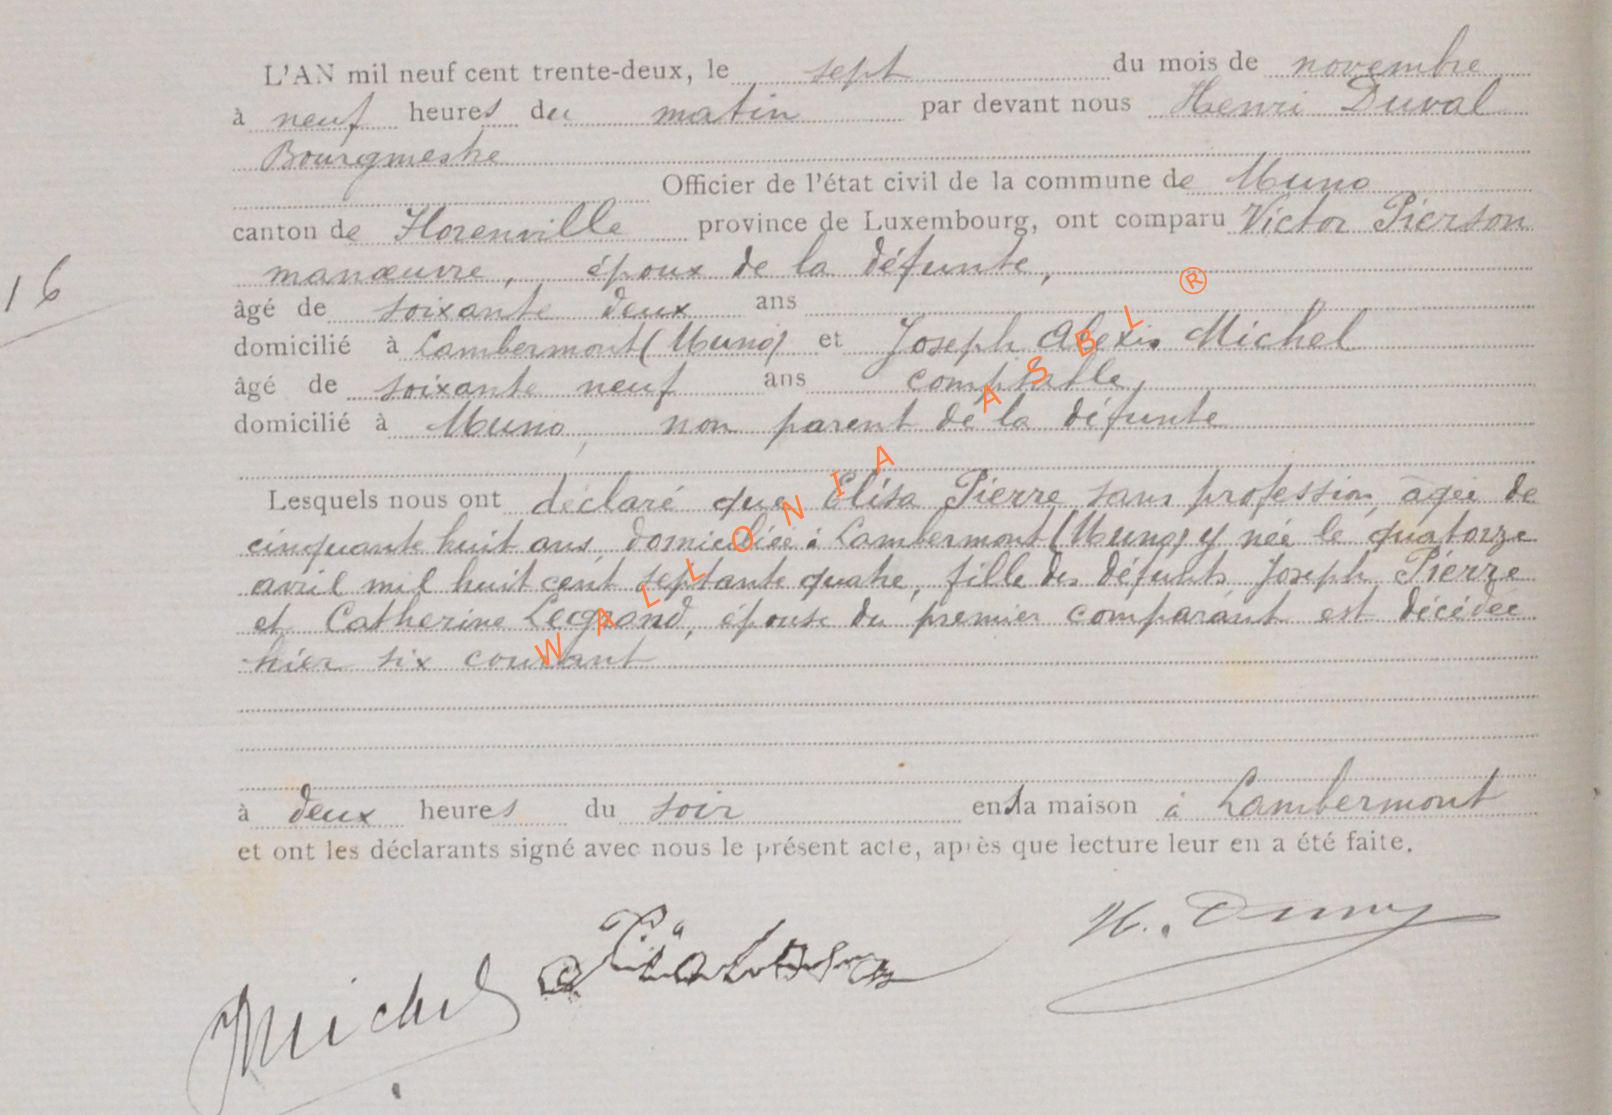 L'AN mil neuf cent trente-deux, le sept du mois de novembre
à neuf heures du matin par devant nous Henri Duval
Bourgmestre
Officier de l'état civil de la commune de Muno
canton de Florenville province de Luxembourg, ont comparu Victor Pierson
manœuvre, époux de la défunte,
16
âgé de soixante deux ans
domicilié à Lambermont (Muno) et Joseph Alexis Michel
âgé de soixante neuf ans comptable,
domicilié à Muno, non parent de la défunte
Lesquels nous ont déclaré que Elisa Pierre sans profession, âgée de
cinquante huit ans domiciliée à Lambermont (Muno) y née le quatorze
avril mil huit cent septante quatre, fille des défunts Joseph Pierre
et Catherine Legrand, épouse du premier comparant est décédée
hier six courant
à deux heures du soir en sa maison à Lambermont
et ont les déclarants signé avec nous le présent acte, après que lecture leur en a été faite.
Michel
WALLONIA ASBL ®